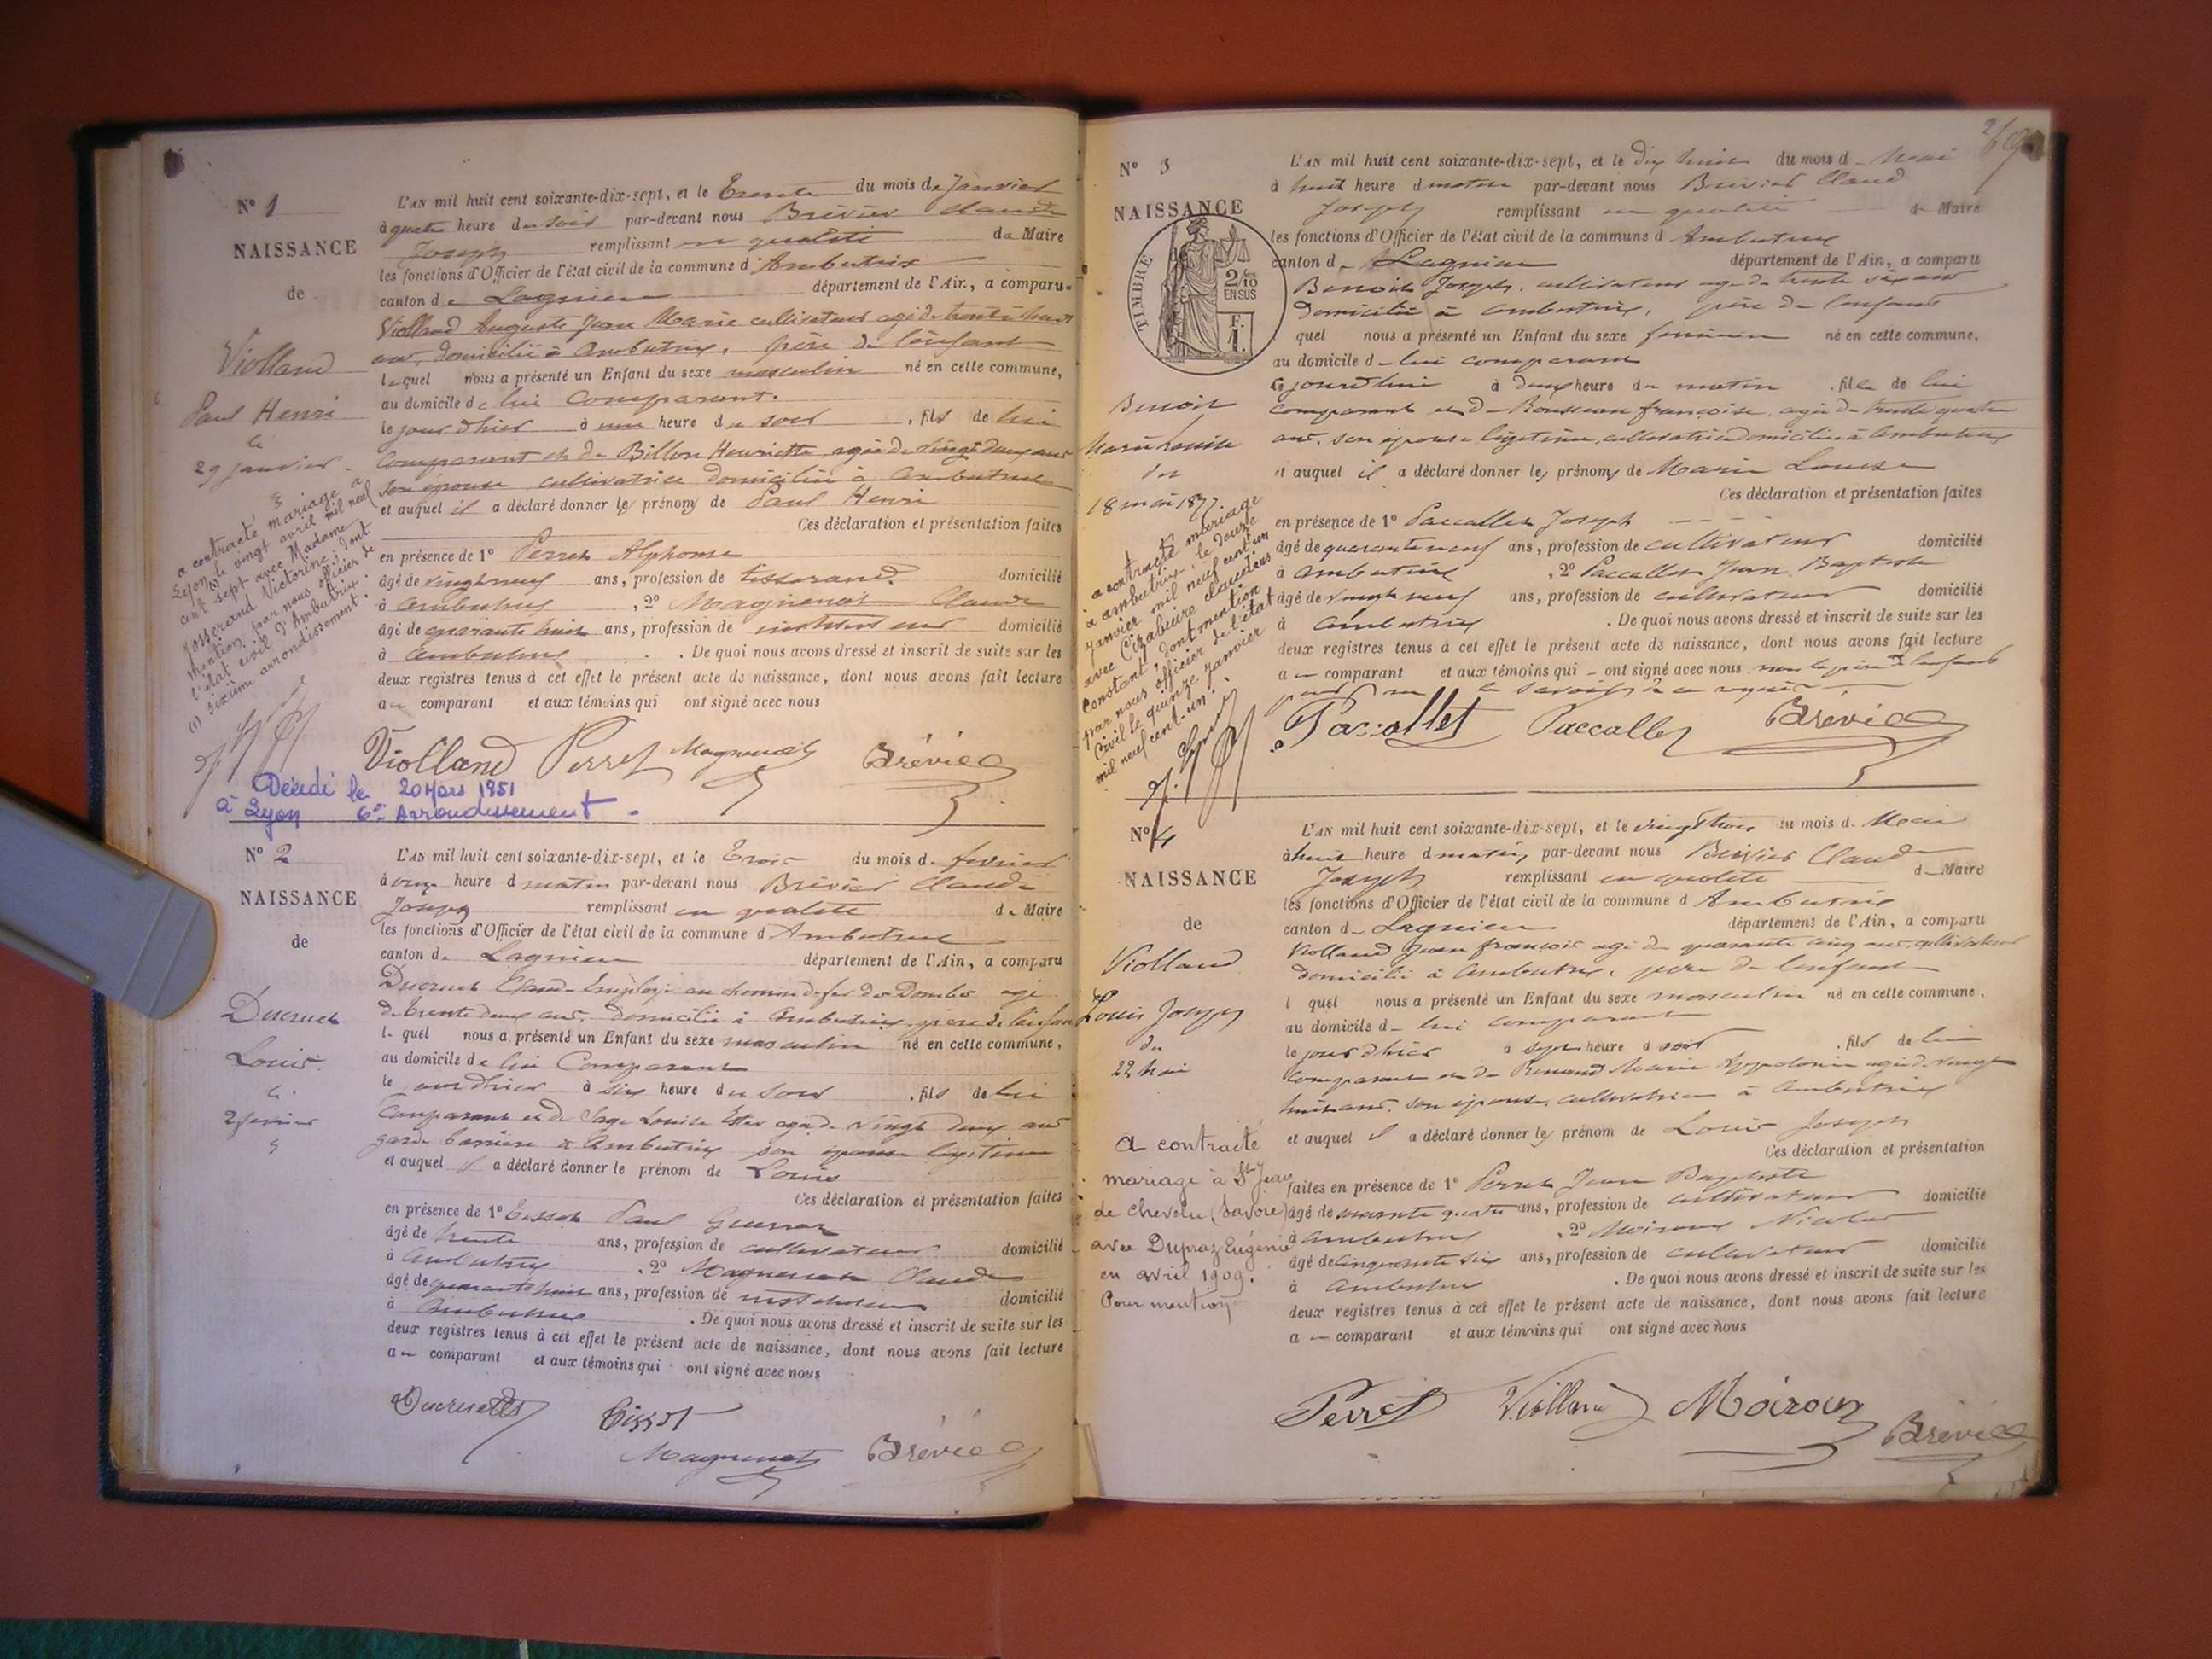 N° 1
NAISSANCE
de
Violland
Paul Henri
le
29 janvier
a contracté mariage à
Lyon (1) le vingt avril mil neuf
cent sept avec Madame
Josserand Victorine; dont
mention par nous officier de
l'état civil d'Ambutrix.
(1) sixième arrondissement.
L'AN mil huit cent soixante-dix-sept, et le Trente du mois de Janvier
à quatre heure du soir par-devant nous Brévier Claude
Joseph remplissant en qualité de Maire
les fonctions d'Officier de l'état civil de la commune d'Ambutrix
canton de Lagnieu département de l'Ain, a comparu
Violland Auguste Jean Marie cultivateur agé de trente huit
ans, domicilié à Ambutrix, père de l'enfant
lequel nous a présenté un Enfant du sexe masculin né en cette commune,
au domicile de lui Comparant.
le jour d'hier à une heure du soir, fils de lui
Comparant et de Billon Henriette agée de vingt deux ans
son épouse, cultivatrice domiciliée à Ambutrix
et auquel il a déclaré donner les prénoms de Paul Henri
Ces déclaration et présentation faites
en présence de 1° Perret Alphonse
âgé de vingt neuf ans, profession de tisserand domicilié
à Ambutrix, 2° Magnenot Claude
âgé de quarante huit ans, profession de instituteur domicilié
à Ambutrix. De quoi nous avons dressé et inscrit de suite sur les
deux registres tenus à cet effet le présent acte de naissance, dont nous avons fait lecture
au comparant et aux témoins qui ont signé avec nous
Violland Perret Magnenot Brévier
Décédé le 20 Mars 1951
à Lyon 6e Arrondissement.
N° 2
NAISSANCE
de
Ducruet
Louis
le
2 fevrier
L'AN mil huit cent soixante-dix-sept, et le Trois du mois de fevrier
à onze heure d matin par-devant nous Brévier Claude
Joseph remplissant en qualité de Maire
les fonctions d'Officier de l'état civil de la commune d Ambutrix
canton de Lagnieu département de l'Ain, a comparu
Ducruet Claude Employé au chemin de fer des Dombes agé
de trente deux ans, domicilié à Ambutrix, père de l'enfant
lequel nous a présenté un Enfant du sexe masculin né en cette commune,
au domicile de lui Comparant
le jour d'hier à six heure du soir, fils de lui
Comparant et de Sage Louise Ester agée de vingt deux ans
garde barrière à Ambutrix son épouse légitime
et auquel il a déclaré donner le prénom de Louis
Ces déclaration et présentation faites
en présence de 1° Tissot Paul
âgé de trente ans, profession de cultivateur domicilié
à Ambutrix, 2° Magnenot Claude
âgé de quarante huit ans, profession de instituteur domicilié
à Ambutrix. De quoi nous avons dressé et inscrit de suite sur les
deux registres tenus à cet effet le présent acte de naissance, dont nous avons fait lecture
au comparant et aux témoins qui ont signé avec nous
Ducruet Tissot
Magnenot Brévier
N° 3
NAISSANCE
TIMBRE
2/10
EN SUS
F.
1.
Benoit
Marie Louise
du
18 mai 1877
a contracté mariage
à ambutrix, le douze
janvier mil neuf cent un
avec Cizabuire Claudius
Constant, dont mention
par nous officier de l'état
civil le quinze janvier
mil neuf cent-un.
L'AN mil huit cent soixante-dix-sept, et le dix huit du mois d Mai
à huit heure d matin par-devant nous Brévier Claude
Joseph remplissant en qualité de Maire
les fonctions d'Officier de l'état civil de la commune d Ambutrix
canton d Lagnieu département de l'Ain, a comparu
Benoit Joseph, cultivateur agé de trente six ans
domicilié à Ambutrix, père de l'enfant
quel nous a présenté un Enfant du sexe féminin né en cette commune,
au domicile d lui comparant
ce jourd'hui à deux heure du matin, fille de lui
comparant et d Rousseau françoise, agée de trente quatre
ans, son épouse légitime, cultivatrice domiciliée à Ambutrix
et auquel il a déclaré donner les prénoms de Marie Louise
Ces déclaration et présentation faites
en présence de 1° Paccallet Joseph
âgé de quarante neuf ans, profession de cultivateur domicilié
à Ambutrix, 2° Paccallet Jean Baptiste
âgé de vingt neuf ans, profession de cultivateur domicilié
à Ambutrix. De quoi nous avons dressé et inscrit de suite sur les
deux registres tenus à cet effet le présent acte de naissance, dont nous avons fait lecture
au comparant et aux témoins qui ont signé avec nous non le père de l'enfant
pour ne le savoir de ce requis
Paccallet Paccallet Brévier
N° 4
NAISSANCE
de
Violland
Louis Joseph
du
22 Mai
A contracté
mariage à St Jean
de Chevelu (Savoie)
avec Dupraz Eugénie
en avril 1909.
Pour mention
L'AN mil huit cent soixante-dix-sept, et le vingt trois du mois d. Mai
à huit heure d matin, par-devant nous Brévier Claude
Joseph remplissant en qualité d Maire
les fonctions d'Officier de l'état civil de la commune d Ambutrix
canton d Lagnieu département de l'Ain, a comparu
Violland Jean françois agé de quarante cinq ans, cultivateur
domicilié à Ambutrix, père de l'enfant
l quel nous a présenté un Enfant du sexe masculin né en cette commune,
au domicile d lui comparant
le jour d'hier a sept heure d soir, fils de lui
Comparant et de Renaud Marie Appolonie agée de vingt
huit ans, son épouse, cultivatrice à Ambutrix
et auquel il a déclaré donner les prénom de Louis Joseph
Ces déclaration et présentation
faites en présence de 1° Perret Jean Baptiste
âgé de quatre ans, profession de cultivateur domicilié
à Ambutrix, 2° Moiroux Nicolas
âgé de cinquante six ans, profession de cultivateur domicilié
à Ambutrix. De quoi nous avons dressé et inscrit de suite sur les
deux registres tenus à cet effet le présent acte de naissance, dont nous avons fait lecture
au comparant et aux témoins qui ont signé avec nous
Perret Violland Moiroux Brévier